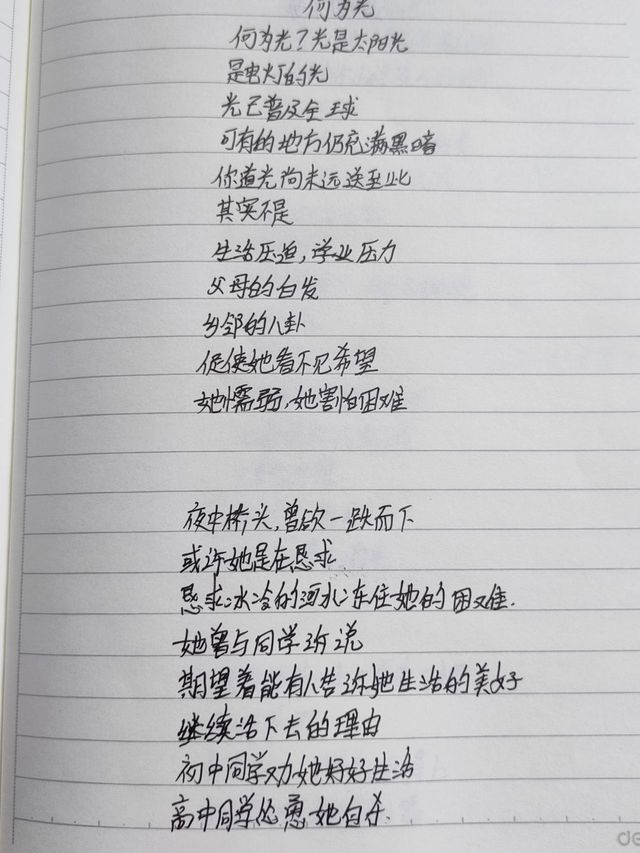 何为光
何为光？光是太阳光
是电灯的光
光已普及全球
可有的地方仍充满黑暗
你道光尚未远送至此
其实不是
生活压迫，学业压力
父母的白发
乡邻的八卦
促使她看不见希望
她懦弱，她害怕困难
夜半桥头，曾欲一跌而下
或许她是在恳求
恳求冰冷的河水冻住她的困难.
她曾与同学诉说
期望着能有人告诉她生活的美好
继续活下去的理由
初中同学劝她好好生活
高中同学怂恿她自杀.
de